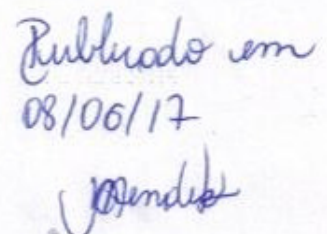 Publicado em
08/06/17